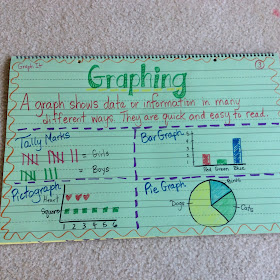 Graph It
3
Graphing
A graph shows data or information in many
different ways. They are quick and easy to read.
Tally Marks
= Girls
= Boys
Bar Graph
Red Green Blue
Pictograph
Heart
Square
1 2 3 4 5 6
Pie Graph
Birds
Dogs
Cats